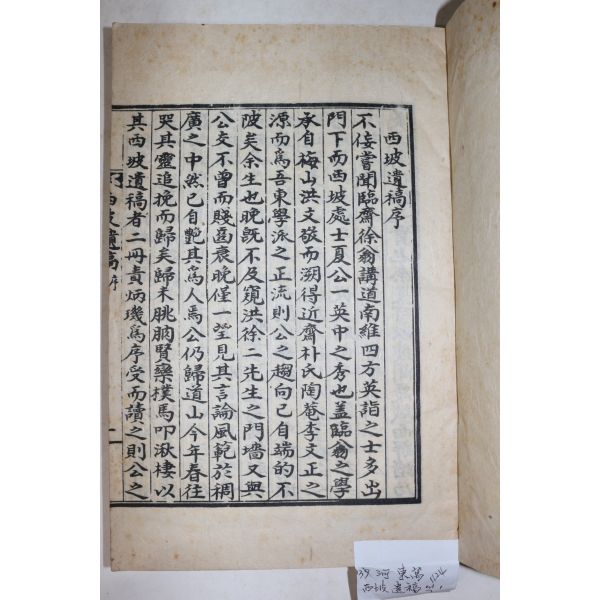 西坡遺稿序
不佞嘗聞臨齋徐翁講道南維四方英詣之士多出
門下而西坡處士夏公一英中之秀也盖臨翁之學
承自梅山洪文敬而溯得近齋朴氏陶菴李文正之
源而爲吾東學派之正流則公之趨向已自端的不
陂矣余生也晚旣不及窺洪徐二先生之門墻又與
公交不曾而賤囙衰晚僅一望見其言論風範於稠
廣之中然已自艶其爲人焉公仍歸道山今年春往
哭其靈追挽而歸矣歸未朓朒賢欒樸馬叩湫棲以
其西坡遺稿者二冊責炳璣爲序受而讀之則公之
西坡遺稿 序
一
39 河東
西坡遺稿